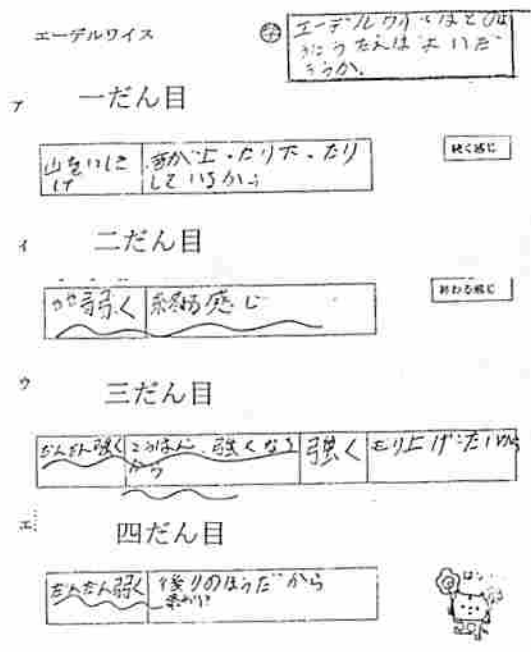 エーデルワイス
エーデルワイスはどのよ
うにうたえばよいだ
ろうか。
ア 一だん目
山をいしき 音が上ったり下ったり
しているから
続く感じ
イ 二だん目
弱く 終わる感じ
終わる感じ
ウ 三だん目
だんだん強く こうはん、強くなる 強く もり上げたいから
から
エ 四だん目
だんだん弱く 後りのほうだから
終わり